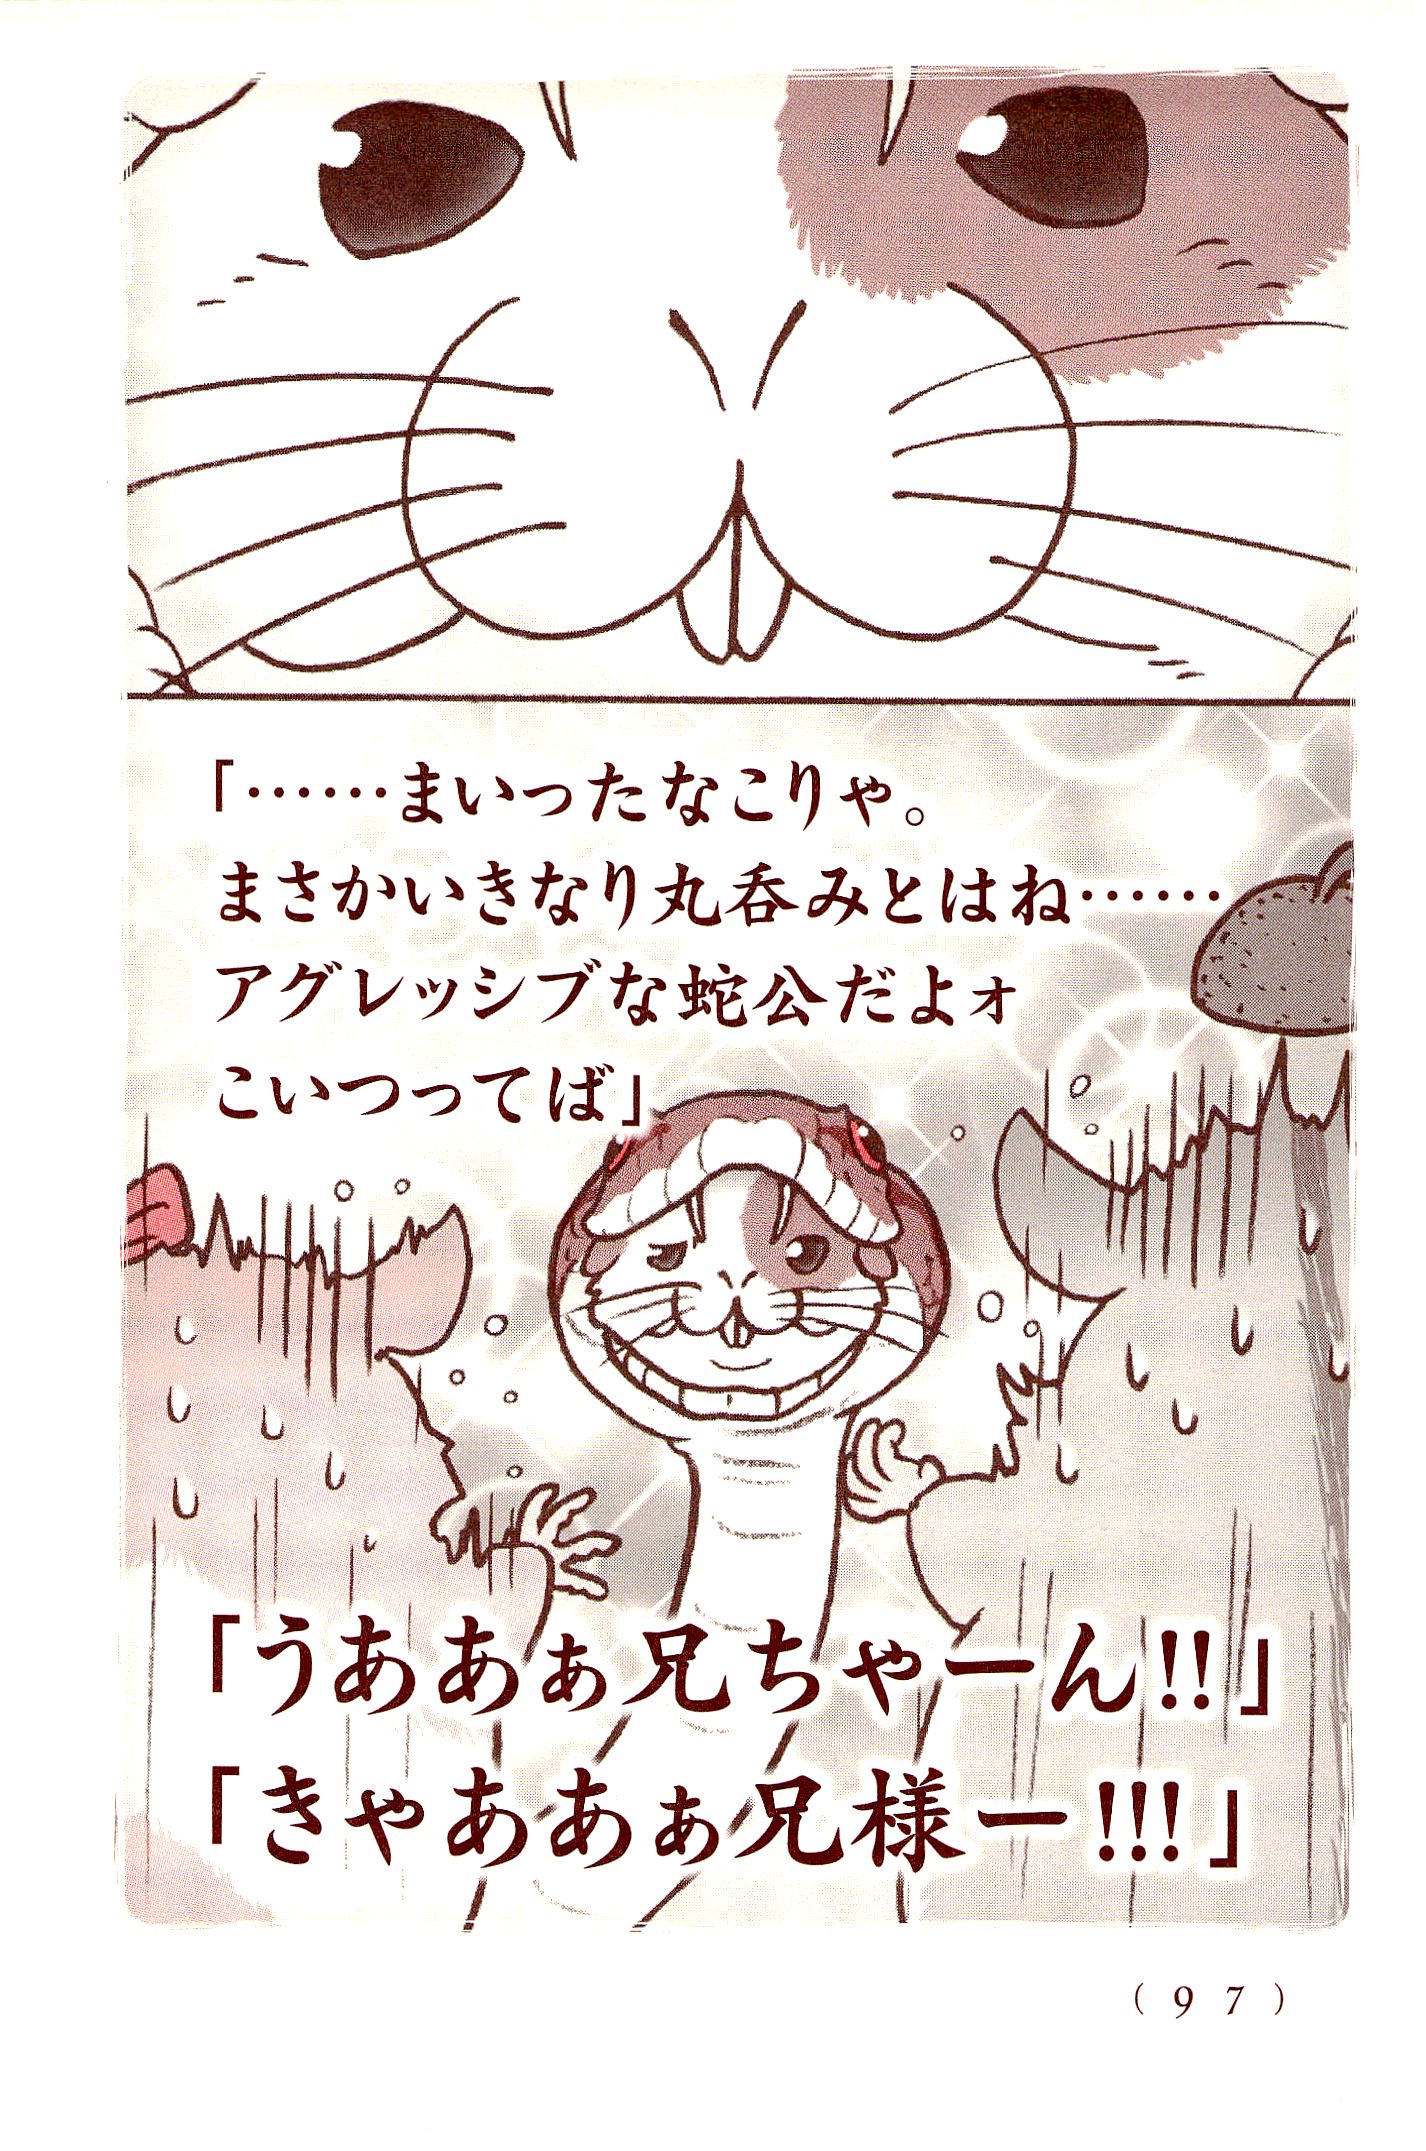 「……まいったなこりゃ。
まさかいきなり丸呑みとはね……
アグレッシブな蛇公だよォ
こいつってば」
「うああぁ兄ちゃーん!!」
「きゃああぁ兄様ー!!!」
(97)